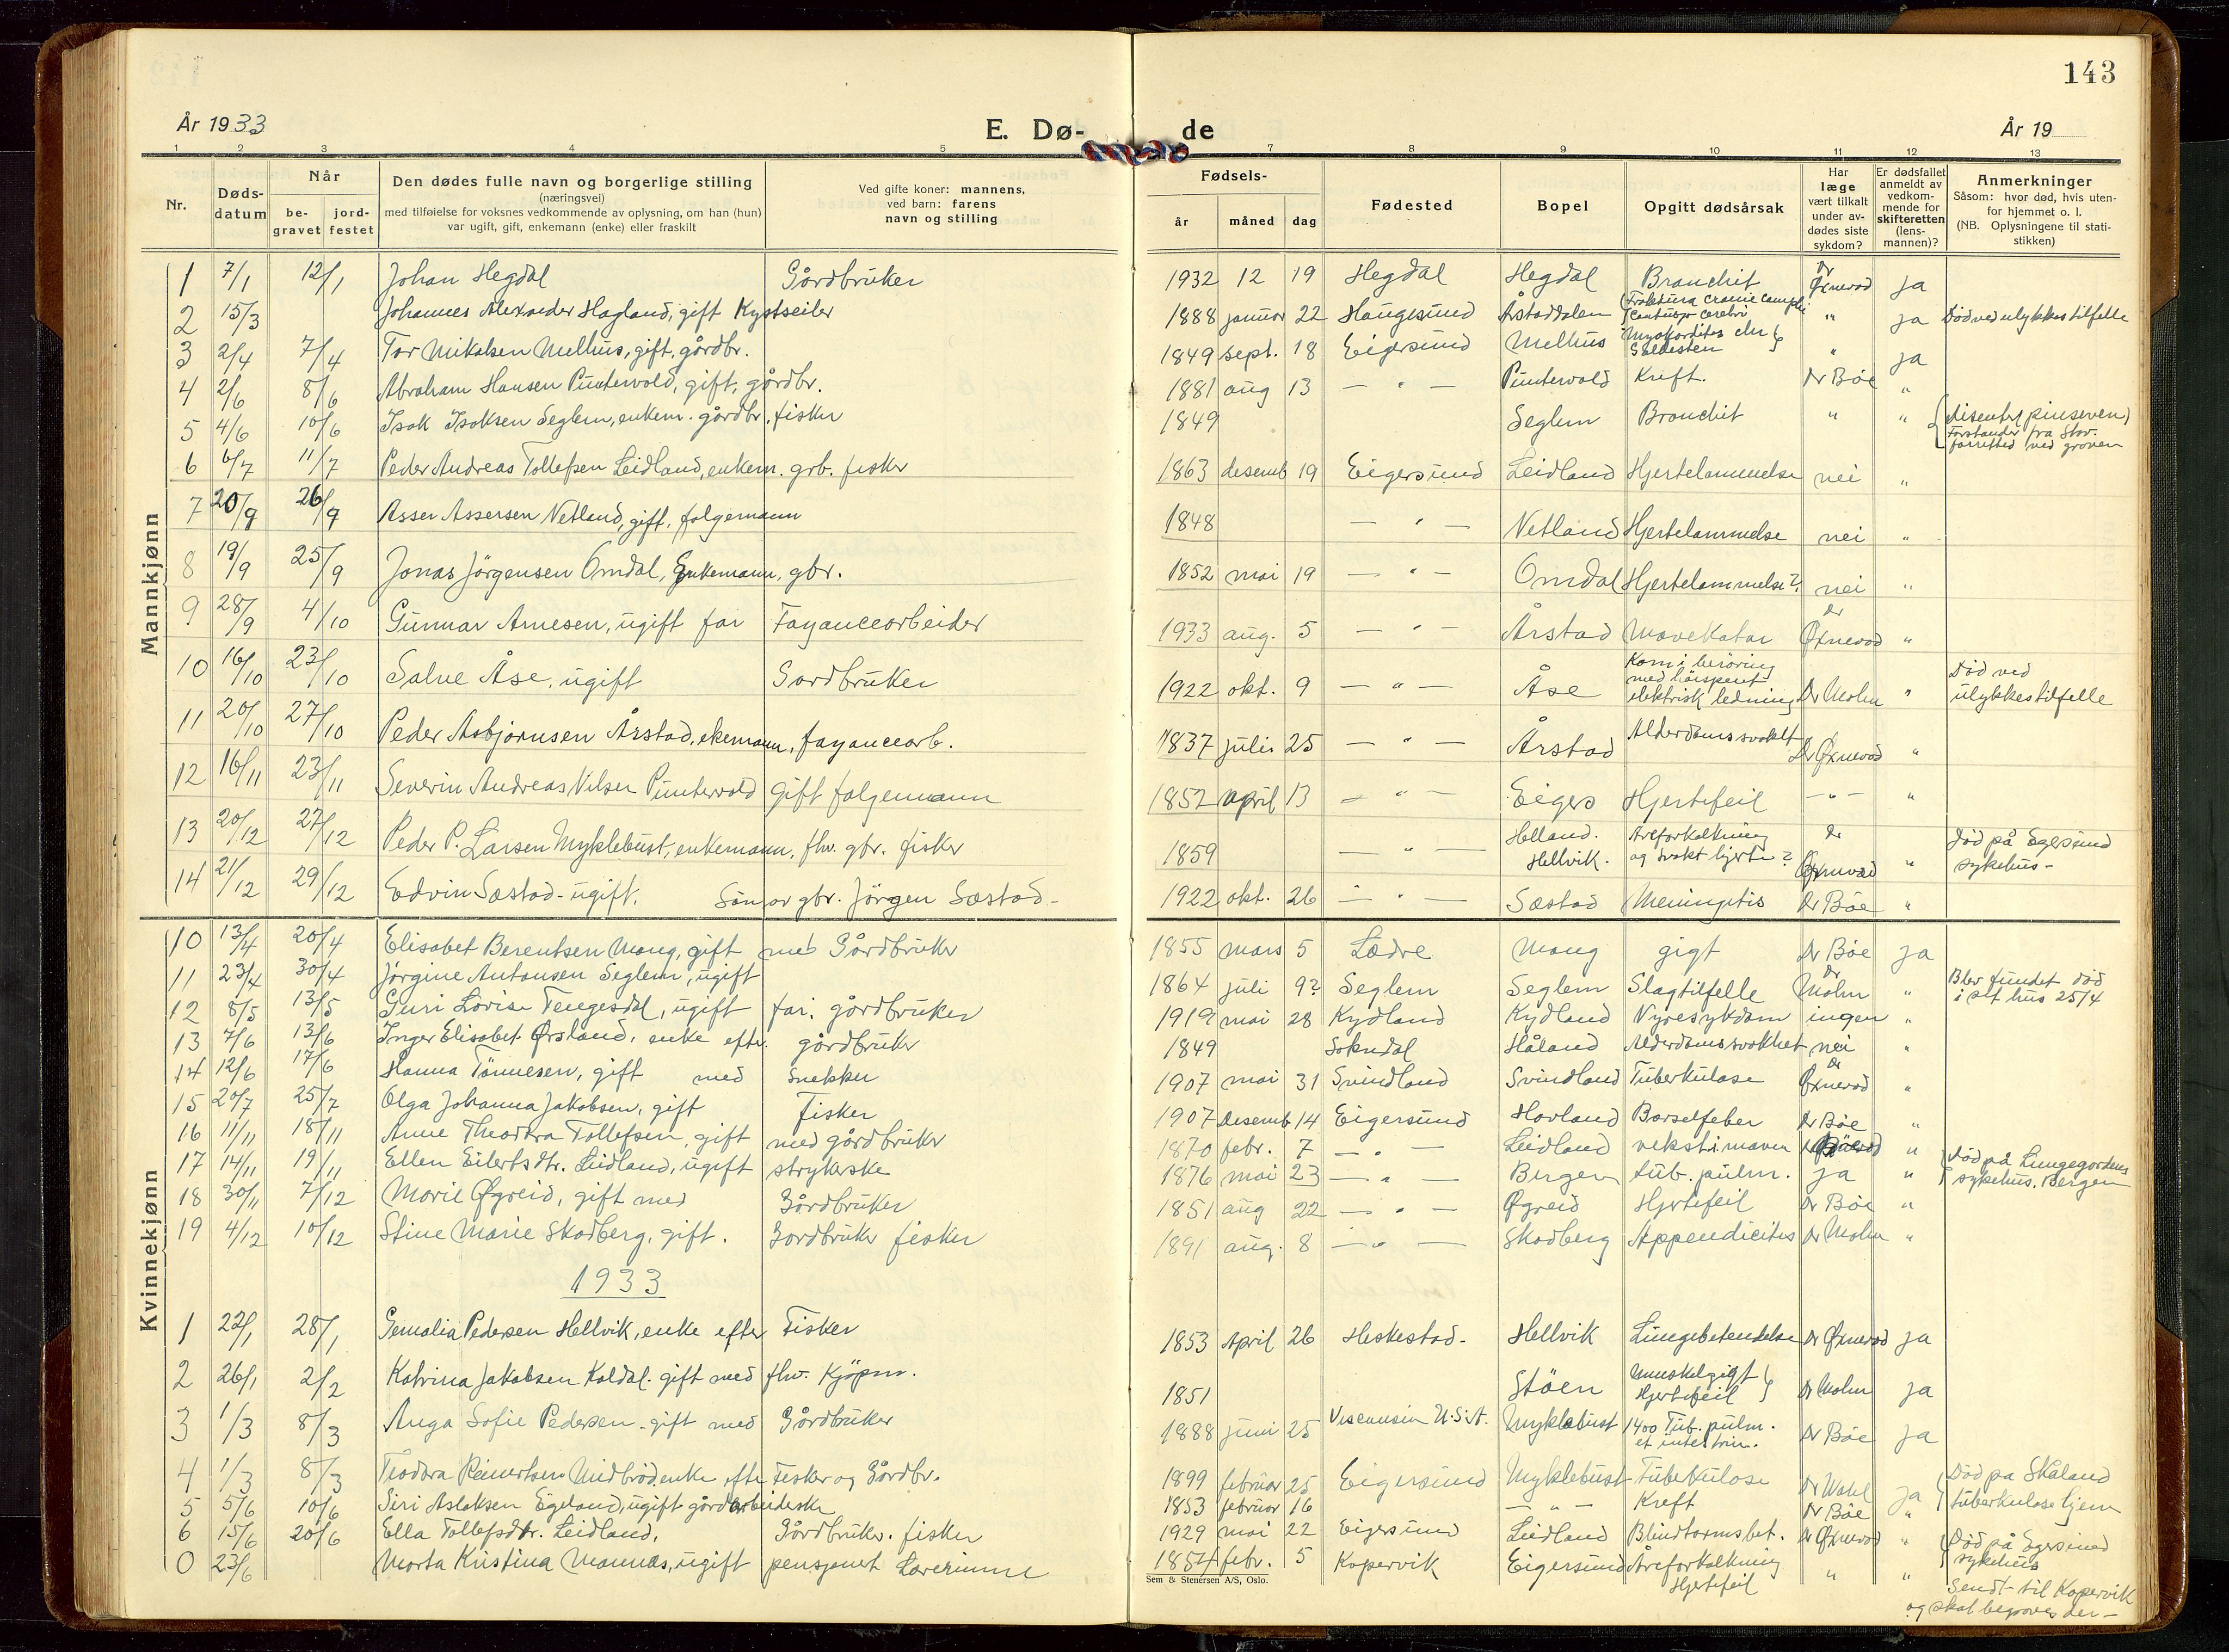 143
År 1933
E. Dø-
de
År 19
1 2 3 4 5 7 8 9 10 11 12 13
Nr.
Døds-
datum
Når
be-
gravet
jord-
festet
Den dødes fulle navn og borgerlige stilling
(næringsvei)
med tilføielse for voksnes vedkommende av oplysning, om han (hun)
var ugift, gift, enkemann (enke) eller fraskilt
Ved gifte koner: mannens,
ved barn: farens
navn og stilling
Fødsels-
år
måned
dag
Fødested
Bopel
Opgitt dødsårsak
Har
læge
vært tilkalt
under av-
dødes siste
sykdom?
Er dødsfallet
anmeldt av
vedkom-
mende for
skifteretten
(lens-
mannen)?
Anmerkninger
Såsom: hvor død, hvis uten-
for hjemmet o. l.
(NB. Oplysningene til stati-
stikken)
Mannkjønn
1 7/1 12/1 Johan Hegdal Gårdbruker 1932 12 19 Hegdal Hegdal Bronchit Dr Øxnevad ja
2 15/3 Johannes Alexander Hagland, gift Kystseiler 1888 januar 22 Haugesund Årstaddalen " ja Død ved ulykkestilfelle
3 2/4 7/4 Tor Mikalsen Melhus, gift, gårdbr. 1849 sept. 18 Eigersund Melhus Myokarditis chr Galdesten " ja
4 2/6 8/6 Abraham Hansen Puntervold, gift, gårdbr. 1881 aug 13 — " — Puntervold Kreft. Dr Bøe "
5 4/6 10/6 Isak Isaksen Seglem, enkem. gårdbr. fisker 1849 Seglem Bronchit " "
6 6/7 11/7 Peder Andreas Tollefsen Leidland, enkem. grb. fisker 1863 desemb 19 Eigersund Leidland Hjertelammelse nei "
7 20/9 26/9 Asser Assersen Vetland, gift, følgemann 1848 — " — Vetland Hjertelammelse nei "
8 19/9 25/9 Jonas Jørgensen Omdal, Enkemann, gbr. 1852 mai 19 — " — Omdal Hjertelammelse? nei "
9 28/9 4/10 Gunnar Arnesen, ugift far Fayancearbeider 1933 aug. 5 — " — Årstad Mavekatar Dr Øxnevad "
10 16/10 23/10 Salve Åse, ugift Gardbruker 1922 okt. 9 — " — Åse Kom i berøring med høispent elektrisk ledning Dr Molm " Død ved ulykkestilfelle
11 20/10 27/10 Peder Asbjørnsen Årstad, ekemann, fayancearb. 1837 juli 25 — " — Årstad Alderdomssvakh Dr Øxnevad "
12 16/11 23/11 Severin Andreas Nilsen Puntervold gift følgemann 1852 april 13 — " — Eigers Hjertefeil — " — "
13 20/12 27/12 Peder P. Larsen Myklebust, enkemann, fhv. gbr. fisker 1859 — " — Helland. Hellvik. Åreforkalkning og svakt hjerte? Dr Øxnevad " Død på Egersund sykehus-
14 21/12 29/12 Edvin Sæstad - ugift. Søn av gbr. Jørgen Sæstad- 1922 okt. 26 — " — Sæstad Meningitis Dr Bøe "
Kvinnekjønn
10 13/4 20/4 Elisabet Berentsen Mong, gift med Gårdbruker 1855 mars 5 Lædre Mong gigt Dr Bøe ja
11 23/4 30/4 Jørgine Antonsen Seglem, ugift 1864 juli 9? Seglem Seglem Slagtilfelle Dr Molm " Blev fundet død i sit hus 25/4
12 8/5 13/5 Guri Lovise Tengesdal, ugift far. gårdbruker 1919 mai 28 Kydland Kydland Nyresykdom ingen "
13 7/6 13/6 Inger Elisabet Ørsland, enke efter gårdbruker 1849 Sokndal Håland Alderdomssvakhet nei "
14 12/6 17/6 Hanna Tønnesen, gift med snekker 1907 mai 31 Svindland Svindland Tuberkulose Dr Øxnevad "
15 20/7 25/7 Olga Johanna Jakobsen, gift Fisker 1907 desemb 14 Eigersund Hovland Barselfeber Dr Bøe "
16 11/11 18/11 Anne Theodora Tollefsen, gift med gårdbruker 1870 febr. 7 — " — Leidland vekst i maven "
17 14/11 19/11 Ellen Eilertsdtr. Leidland, ugift strykerske 1876 mai 23 — " — Bergen tub. pulm. ja " Død på Lungegardens sykehus, Bergen
18 30/11 7/12 Marie Øgreid, gift med Gårdbruker 1851 aug 22 — " — Øgreid Hjertefeil Dr Bøe "
19 4/12 10/12 Stine Marie Skadberg, gift. Gardbruker fisker 1891 aug. 8 — " — Skadberg Appendicitis Dr Molm "
1933
1 22/1 28/1 Pedersen Hellvik, enke efter Fisker 1853 April 26 Heskestad- Hellvik Lungebetendelse Dr Øxnevad ja
2 26/1 2/2 Katrina Jakobsen Koldal. gift med fhv. Kjøpm. 1851 Støen Muuskelgigt Hjertefeil Dr Molm ja
3 1/3 8/3 Anga Sofie Pedersen - gift med Gårdbruker 1888 juni 25 Visconsin U.S.A. Myklebust Tub. pulm. et intestin. Dr Bøe ja
4 1/3 8/3 Teodora Reinertsen Midbrød enke efter Fisker og Gårdbr. 1899 februar 25 Eigersund Myklebust Tuberkulose Dr Wahl ja Død på Skåland tuberkulosehjem
5 5/6 10/6 Siri Aslaksen Egeland, ugift gårdarbeiderske 1853 februar 16 — " — Kreft Dr Bøe "
6 15/6 20/6 Ella Tollefsdtr. Leidland, Gårdbruker. fisker 1929 mai 22 Eigersund Leidland Blindtarmsbet. Dr Øxnevad " Død på Egersund sykehus
0 23/6 Marta Kristina Mannes, ugift pensjonert Lærerinne 1854 febr. 5 Kopervik Eigersund Åreforkalkning Hjertefeil " " Sendt til Kopervik og skal begraves der-
Sem & Stenersen A/S, Oslo.